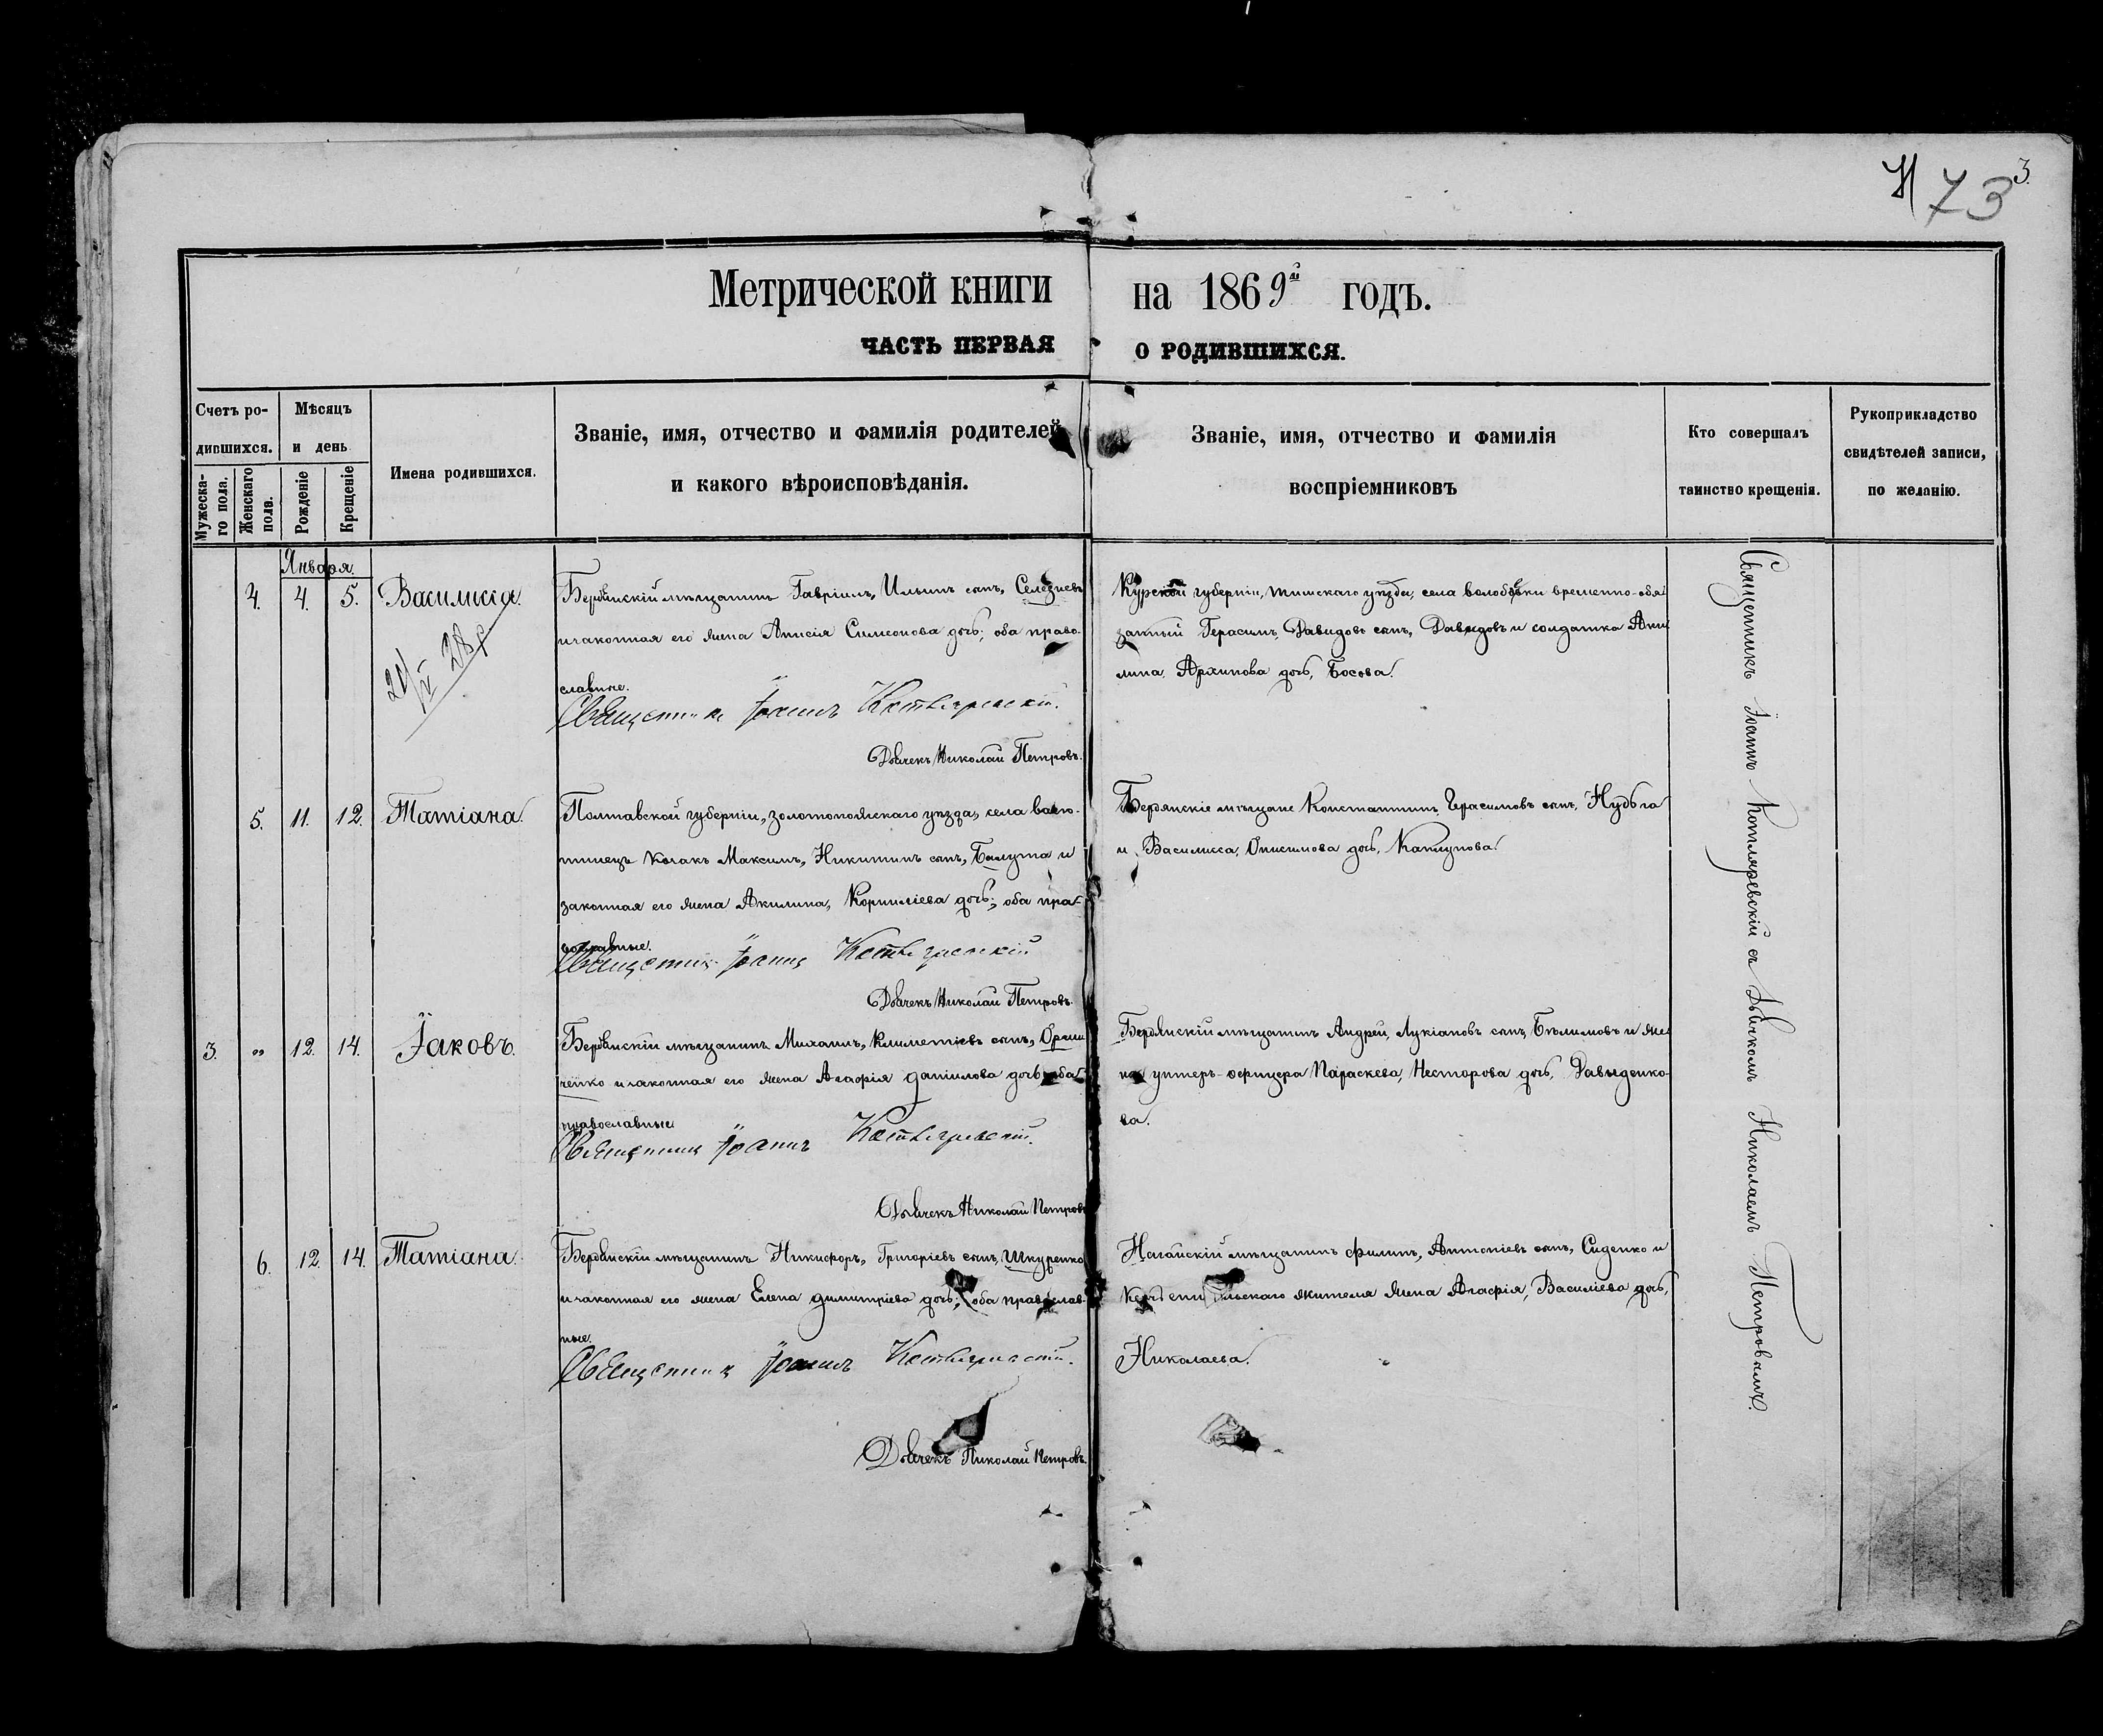 73 3.
Метрической книги на 1869й годъ.
ЧАСТЬ ПЕРВАЯ О РОДИВШИХСЯ.
Счетъ родившихся.
Мужескаго пола.
Женскаго пола.
Мѣсяцъ и день
Рожденіе
Крещеніе
Имена родившихся.
Званіе, имя, отчество и фамилія родителей
и какого вѣроисповѣданія.
Званіе, имя, отчество и фамилія
воспріемниковъ
Кто совершалъ
таинство крещенія.
Рукоприкладство
свидѣтелей записи,
по желанію.
Января.
4. 4. 5. Василисія.
Бердянскій мѣщанинъ Гавріилъ, Ильинъ сынъ, Селезневъ
и законная его жена Анисія Симеонова дочь; оба право-
славные.
Священникъ Іоаннъ Котляревскій.
Дьячекъ Николай Петровъ.
Курской губерніи, тимскаго уѣзда, села волобуевки временно-обя
занный Герасимъ, Давидовъ сынъ, Давыдовъ и солдатка Аки
лина, Архипова дочь, Босова.
5. 11. 12. Татіана.
Полтавской губерніи, золотоношскаго уѣзда, села
казакъ Максимъ, Никитинъ сынъ, Балута и
законная его жена Акилина, Корниліева дочь; оба пра-
вославные.
Священникъ Іоаннъ Котляревскій
Дьячекъ Николай Петровъ.
Бердянскіе мѣщане Константинъ, Герасимовъ сынъ, Нудьга
и Василисса, Онисимова дочь, Каплунова.
3. " 12. 14. Іаковъ.
Бердянскій мѣщанинъ Михаилъ, Климентіевъ сынъ,
ченко и законная его жена Агафія Даніилова дочь оба
православные
Священникъ Іоаннъ Котляревскій.
Дьячекъ Николай Петровъ
Бердянскій мѣщанинъ Андрей, Лукіановъ сынъ, Бѣлимовъ и же
на унтеръ-офицера Параскева, Несторова дочь, Давыденко-
ва.
6. 12. 14. Татіана.
Бердянскій мѣщанинъ Никифоръ, Григоріевъ сынъ, Шкуренко
и законная его жена Елена Димитріева дочь; оба православ-
ные.
Священникъ Іоаннъ Котляревскій.
Дьячекъ Николай Петровъ.
Ногайскій мѣщанинъ Филипъ, Антоніевъ сынъ, Сиденко и
жителя жена Агафія, Василіева дочь,
Николаева.
Священникъ Іоаннъ Котляревскій съ Дьячкомъ Николаемъ Петровымъ.